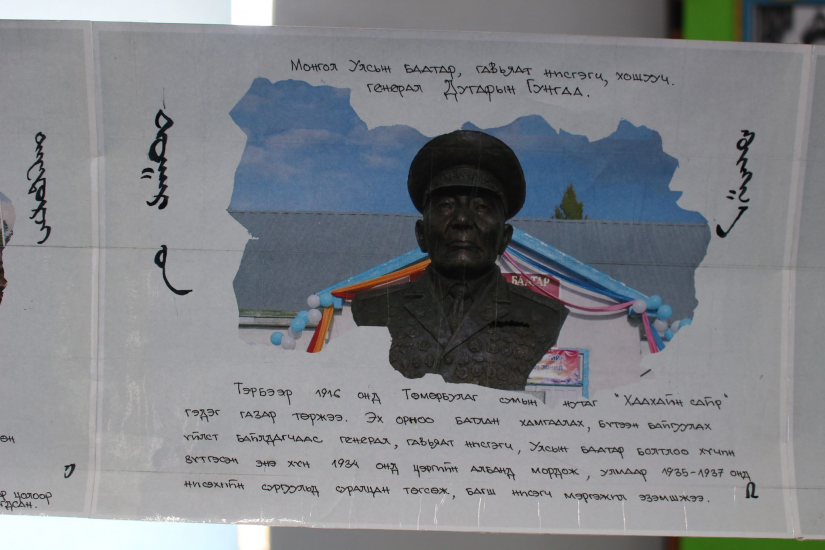 Монгол Улсын баатар, гавьяат нисгэгч, хошууч.
генерал Дугарын Гунгаа.
БААТАР
Тэрбээр 1916 онд Төмөрбулаг сумын нутаг "Хаахайн сайр"
гэдэг газар төржээ. Эх орноо батлан хамгаалах, бүтээн байгуулах
үйлст байлдагчаас генерал, гавьяат нисгэгч, Улсын баатар болтлоо хүчин
зүтгэсэн энэ хүн 1934 онд цэргийн албанд мордож, улмаар 1935-1937 онд
нисэхийн сургуульд суралцан төгсөж, багш нисгэгч мэргэжил эзэмшжээ.